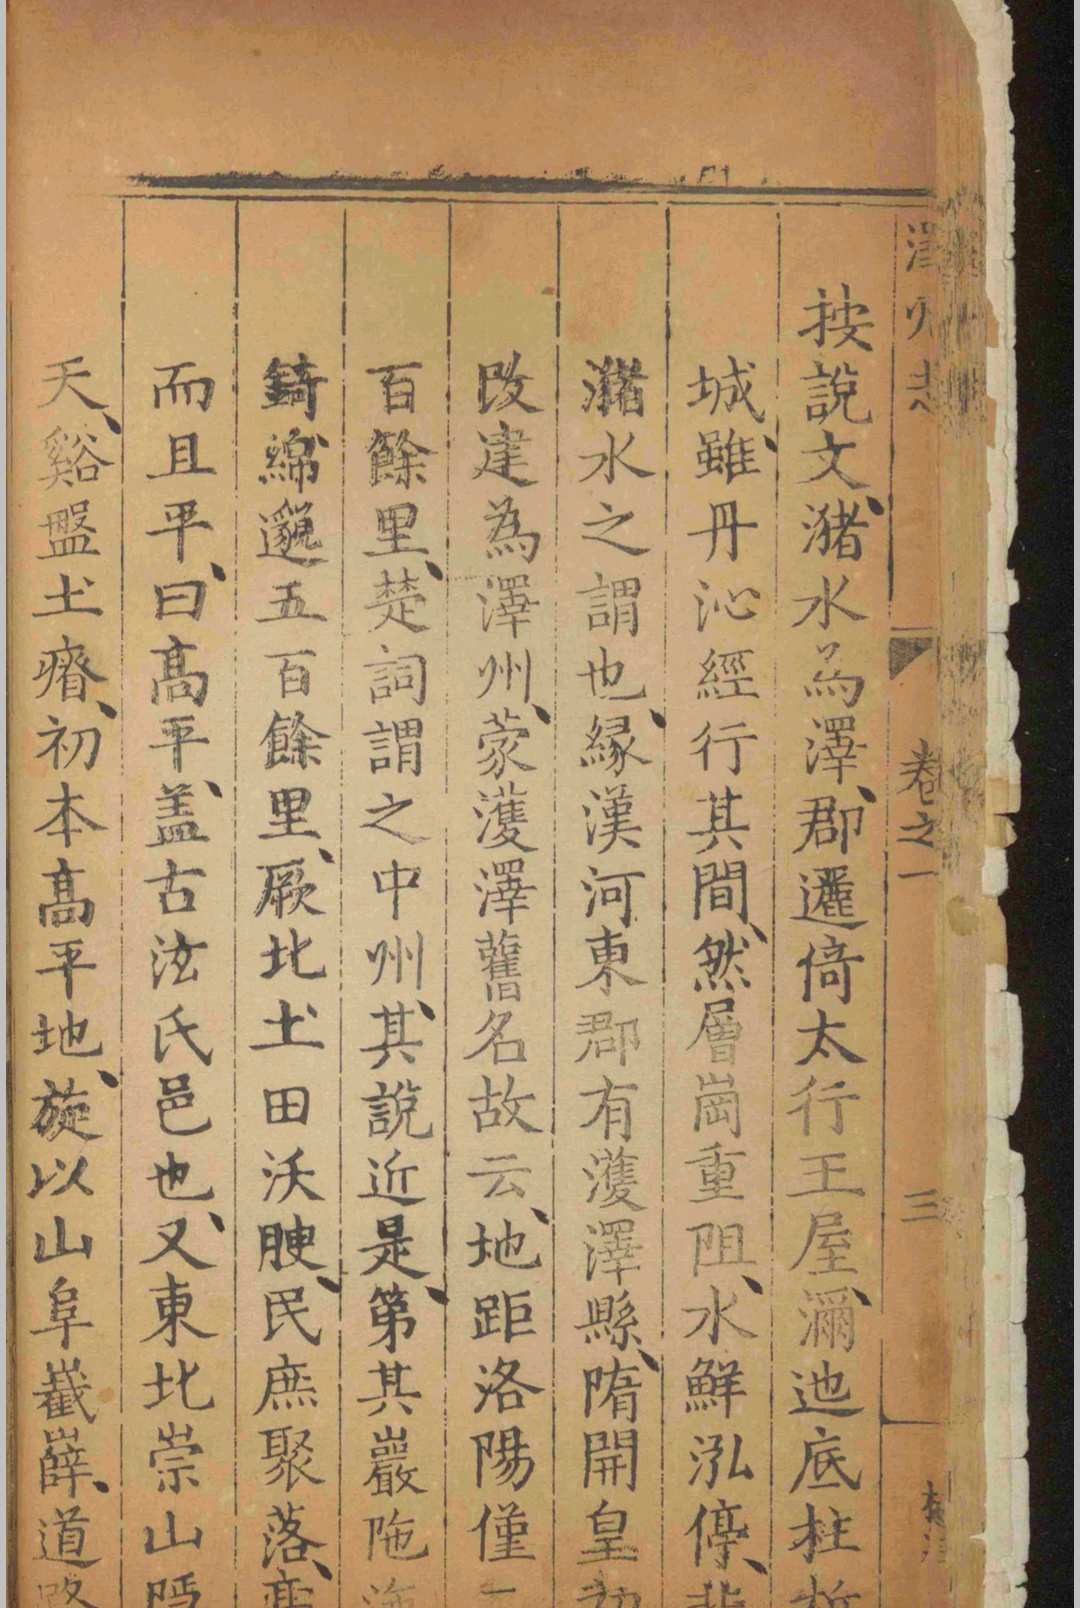 澤州志 卷之一 三
按說文瀦水為澤郡邐倚太行王屋瀰迆底柱析
城雖丹沁經行其間然層崗重阻水鮮泓停
瀦水之謂也緣漢河東郡有濩澤縣隋開皇初
改建為澤州蒙濩澤舊名故云地距洛陽僅
百餘里楚詞謂之中州其說近是第其巖陁
錡綿邈五百餘里厥北土田沃腴民庶聚落
而且平曰高平盖古泫氏邑也又東北崇山
天谿盤土瘠初本高平地旋以山阜嶻嶭道路